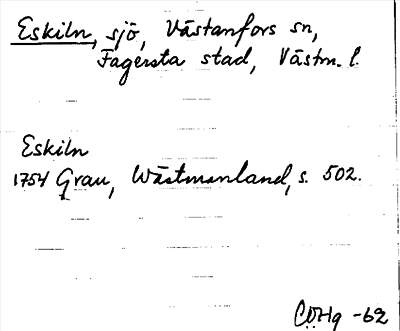 Eskiln, sjö, Västanfors sn,
Fagersta stad, Västm. l.
Eskiln
1754 Grau, Wästmanland, s. 502.
COHg -62